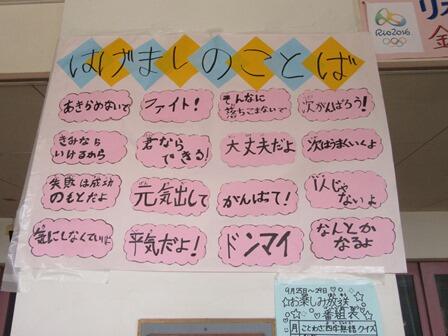 はげましのことば
あきらめないで
ファイト!
そんなに
落ちこまないで
次がんばろう!
きみなら
いけるから
君なら
できる!
大丈夫だよ
次はうまくいくよ
失敗は成功
のもとだよ
元気出して
がんばて!
1人じゃ
ないよ
気にしなくていいよ
平気だよ!
ドンマイ
なんとか
なるよ
Rio2016
9月25日〜29日
お楽しみ放送
番組表
月 ことわざ四字熟語クイズ